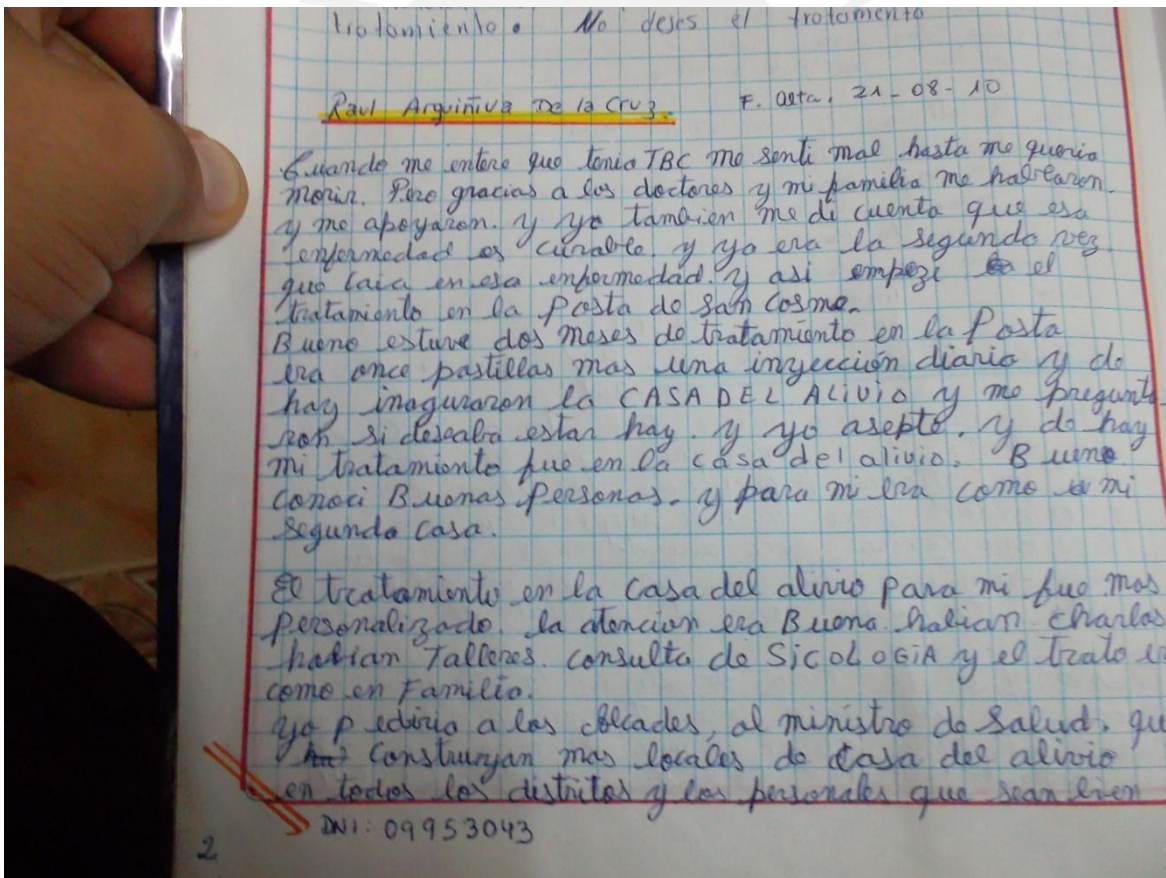 tratamiento. No deses el tratamento
Raul Arguiñiva De la Cruz. F. Alta. 21-08-10
Cuando me entere que tenia TBC me senti mal hasta me queria
morir. Pero gracias a los doctores y mi familia me hablaron.
y me apoyaron. y yo tambien me di cuenta que esa
enfermedad es curable. y yo era la segunda vez
que caia en esa enfermedad. y asi empeze el
tratamiento en la Posta de San Cosme.
Bueno estuve dos meses de tratamiento en la Posta
era once pastillas mas una inyección diario y de
hay inaguraron la CASA DEL ALiViO y me pregunta
ron si deseaba estar hay. y yo asepte. y de hay
mi tratamiento fue en la casa del alivio. Bueno
conoci Buenas Personas. y para mi era como mi
segunda casa.
El tratamiento en la Casa del alivio para mi fue mas
Personalizado. la atencion era Buena. habian charlas
habian Talleres. consulta de SicoLOGiA y el trato
como en Familia.
yo pediria a las, al ministro de Salud. qu
Construyan mas locales de Casa del alivio
en todos los distritos y los personales que sean bien
DNI: 09953043
2